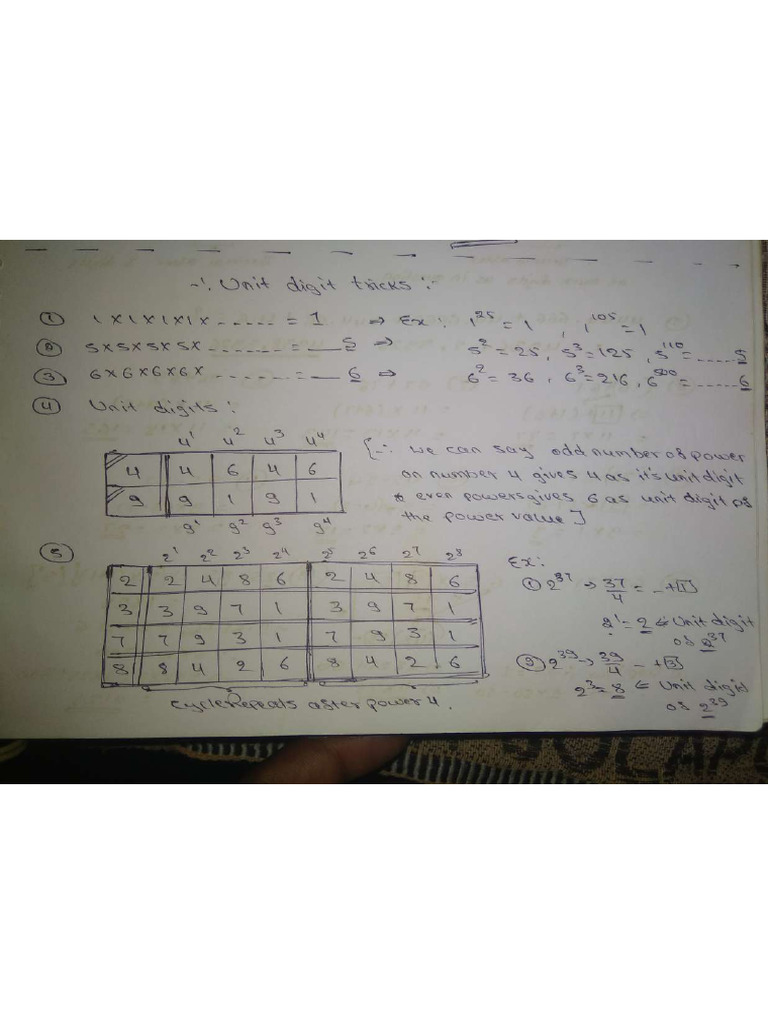 ∴ Unit digit tricks :-
① 1×1×1×1× ...... = 1 ⇒ Ex : 1^25 = 1 , 1^105 = 1
② 5×5×5×5× ........ = __ 5 ⇒ 5^2 = 25, 5^3 = 125, 5^110 = ......5
③ 6×6×6×6× ......... = __ 6 ⇒ 6^2 = 36, 6^3 = 216, 6^500 = ......6
④ Unit digits :
4^1 4^2 4^3 4^4
4 4 6 4 6
9 9 1 9 1
9^1 9^2 9^3 9^4
[∴ we can say odd number of power
on number 4 gives 4 as it's unit digit
& even powers gives 6 as unit digit of
the power value]
⑤ 2^1 2^2 2^3 2^4 2^5 2^6 2^7 2^8
2 2 4 8 6 2 4 8 6
3 3 9 7 1 3 9 7 1
7 7 9 3 1 7 9 3 1
8 8 4 2 6 8 4 2 6
cycle Repeats after power 4.
Ex:
① 2^37 → 37/4 = - +1
2^1 = 2 ← Unit digit
of 2^37
② 2^39 → 39/4 - +3
2^3 = 8 ← Unit digit
of 2^39